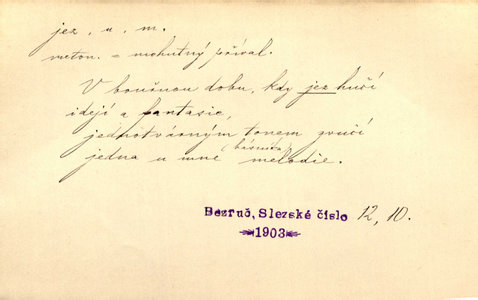 jez, u, m.
meton. = mohutný příval.
V bouřnou dobu, kdy jez hučí
idejí a fantasie,
jednotvárným tonem zvučí
jedna u mne (básníka) melodie.
Bezruč, Slezské číslo 12, 10.
1903